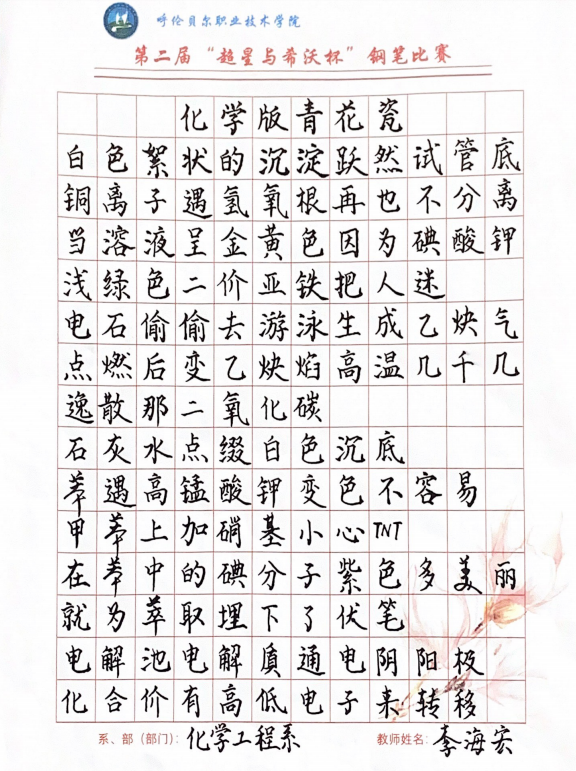 呼伦贝尔职业技术学院
第二届“超星与希沃杯”钢笔比赛
化学版青花瓷
白色絮状的沉淀跃然试管底
铜离子遇氢氧根再也不分离
当溶液呈金黄色因为碘酸钾
浅绿色二价亚铁把人迷
电石偷偷去游泳生成乙炔气
点燃后变乙炔焰高温几千几
逸散那二氧化碳
石灰水点缀白色沉底
苯遇高锰酸钾变色不容易
甲苯上加硝基小心TNT
在苯中的碘分子紫色多美丽
就为萃取埋下了伏笔
电解池电解质通电阴阳极
化合价有高低电子来转移
系、部（部门）：化学工程系 教师姓名：李海宏